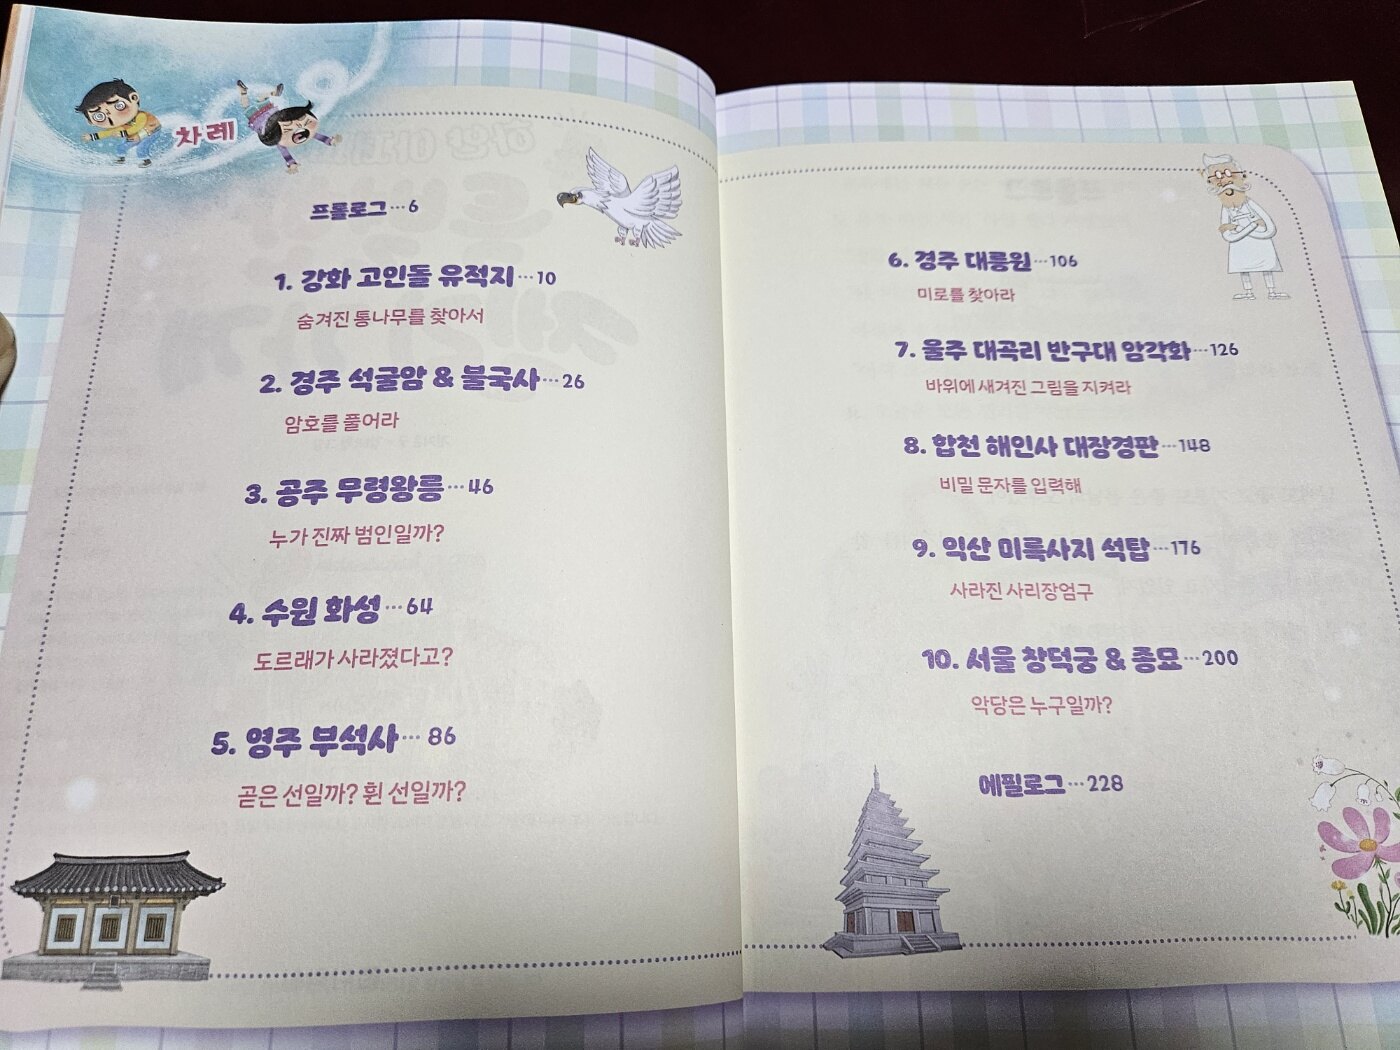 차례
프롤로그 … 6
1. 강화 고인돌 유적지 … 10
숨겨진 통나무를 찾아서
2. 경주 석굴암 & 불국사 … 26
암호를 풀어라
3. 공주 무령왕릉 … 46
누가 진짜 범인일까?
4. 수원 화성 … 64
도르래가 사라졌다고?
5. 영주 부석사 … 86
곧은 선일까? 휜 선일까?
6. 경주 대릉원 … 106
미로를 찾아라
7. 울주 대곡리 반구대 암각화 … 126
바위에 새겨진 그림을 지켜라
8. 합천 해인사 대장경판 … 148
비밀 문자를 입력해
9. 익산 미륵사지 석탑 … 176
사라진 사리장엄구
10. 서울 창덕궁 & 종묘 … 200
악당은 누구일까?
에필로그 … 228